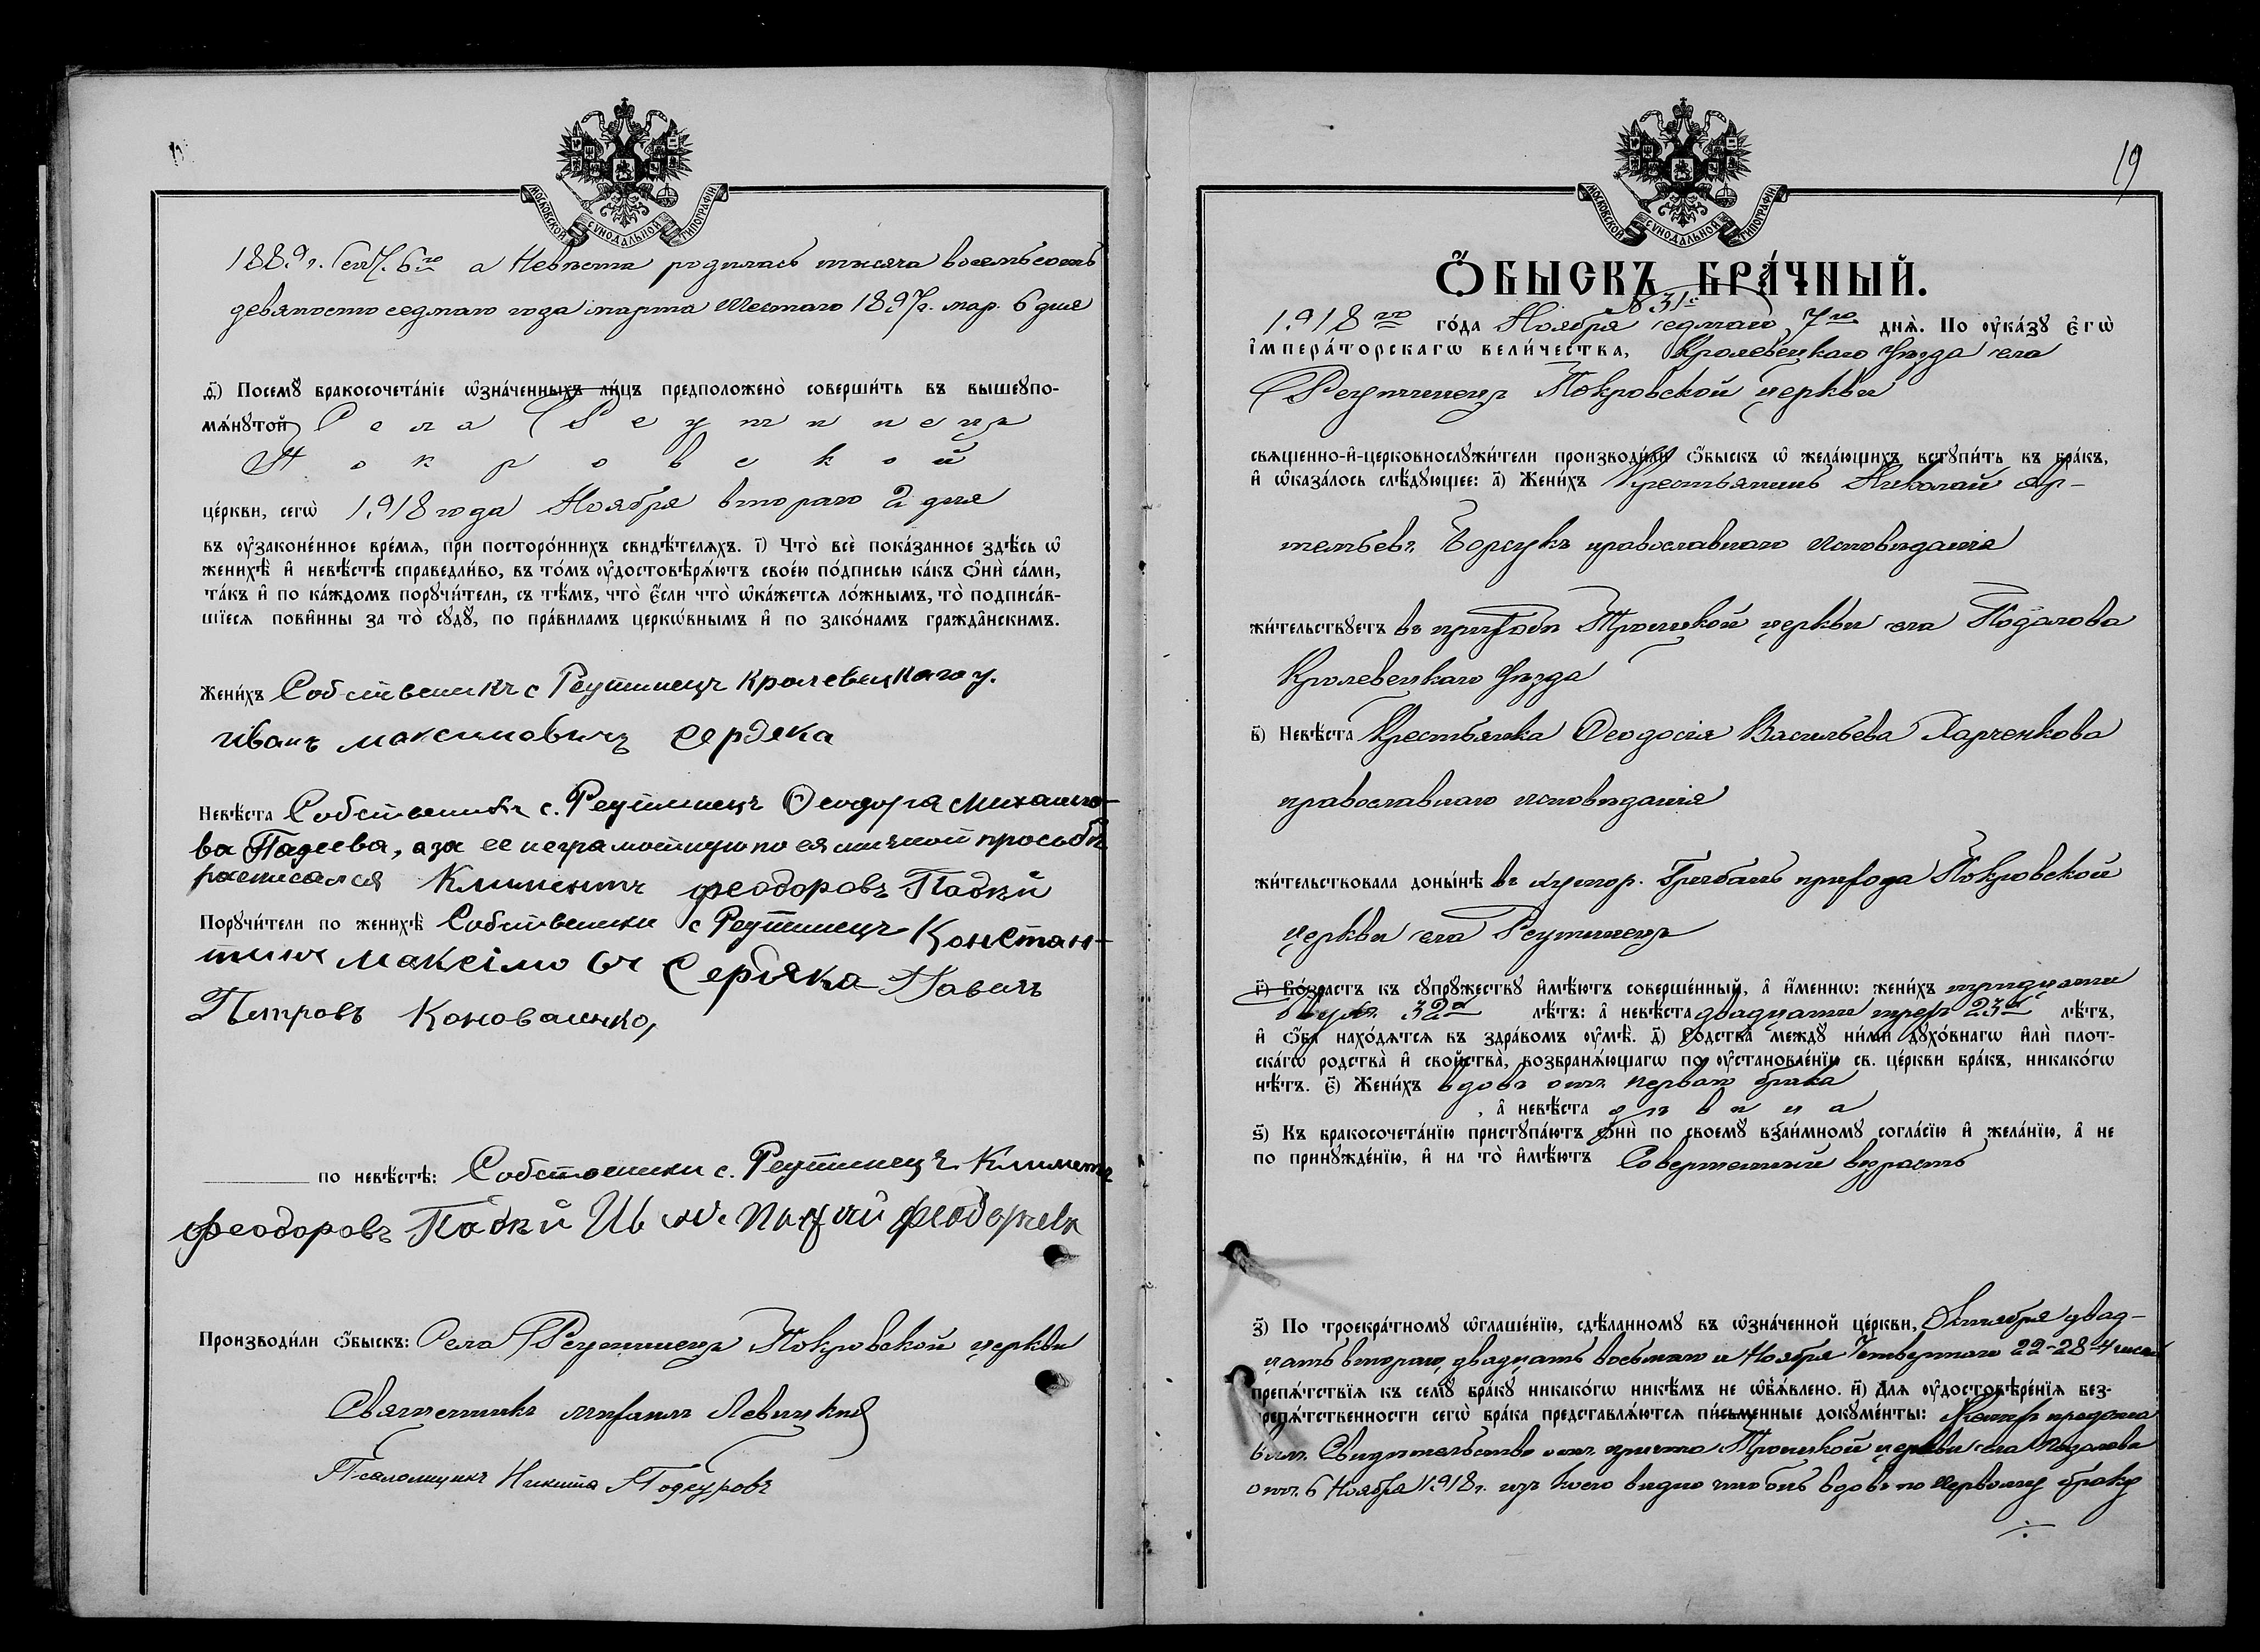 МОСКОВСКОЙ СѴНОДАЛЬНОЙ ТИПОГРАФІИ
1889 г. Сент. 6го а Невѣста родилась тысяча восемьсотъ
девяносто седмаго года марта Шестаго 1897 г. мар. 6 дня
ѳ҃) Посемꙋ̀ бракосочета́нїе ѡ҆зна́ченныхъ ли́цъ предположено̀ соверши́ть въ вышеꙋпо-
мѧ́нꙋтой Села Реутинецъ
Покровской
це́ркви, сегѡ̀ 1918 года Ноября втораго 2 дня
въ ᲂу҆законе́нное вре́мѧ, при посторо́ннихъ свидѣ́телѧхъ. і҃) Что̀ всѐ пока́занное здѣ́сь ѡ҆
женихѣ̀ и҆ невѣ́стѣ справедли́во, въ то́мъ ᲂу҆достовѣрѧ́ютъ свое́ю по́дписью ка́къ ѻ҆нѝ са́ми,
та́къ и҆ по ка́ждомъ порꙋчи́тели, съ тѣ́мъ, что̀ є҆́сли что̀ ѡ҆ка́жетсѧ ло́жнымъ, то̀ подписа́в-
шїесѧ пови́нны за то̀ сꙋдꙋ̀, по пра́виламъ церкѡ́внымъ и҆ по зако́намъ гражда̑нскимъ.
Жени́хъ Собственикъ с Реутинецъ Кролевецкаго у.
Иванъ максимовичъ Сердека
Невѣ́ста с. Реутинецъ Феодора Михаило-
ва Падеева, а за ее неграмотную по ея личной просьбѣ
расписался Климентъ феодоровъ Падкій
Порꙋчи́тели по женихѣ̀ Собственики с Реутинецъ Констан-
тинъ Максімовъ Сердяка Павелъ
Петровъ Коноваленко,
по невѣ́стѣ: Собственики с. Реутинецъ Климентъ
феодоровъ Падкій
Производи́ли ѻ҆́быскъ: Села Реутинецъ Покровской церкви
Священникъ Михаилъ Левицкій
Псаломщикъ Никита
19
МОСКОВСКОЙ СѴНОДАЛЬНОЙ ТИПОГРАФІИ
Ѻ҆́БЫСКЪ БРА́ЧНЫЙ.
№ 31й
1918го го́да Ноября седмаго 7го днѧ̀. По ᲂу҆ка́зꙋ є҆гѡ̀
і҆мпера́торскагѡ вели́чества, Кролевецкаго уѣзда села
Реутинецъ Покровской церкви
свѧще́нно-и҆-церковнослꙋжи́тели производи́ли ѻ҆́быскъ ѡ҆ жела́ющихъ встꙋпи́ть въ бра́къ,
и҆ ѡ҆каза́лось слѣ́дꙋющее: а҃) Жени́хъ Крестьянинъ Николай Ар-
темьевъ Борсукъ православнаго исповѣданія
жи́тельствꙋетъ въ приходѣ Троицкой церкви села Подолова
Кролевецкаго уѣзда
в҃) Невѣ́ста Крестьянка Феодосія Васильева Харченкова
православнаго исповѣданія
жи́тельствовала доны́нѣ въ хутор. Грибанъ прихода Покровской
церкви села Реутинецъ
г҃) Во́зрастъ къ сꙋпрꙋ́жествꙋ и҆мѣ́ютъ соверше́нный, а҆ и҆́меннѡ: жени́хъ тридцати
двухъ 32х лѣ́тъ: а҆ невѣ́ста двадцати трехъ 23х лѣ́тъ,
и҆ ѻ҆́ба нахо́дѧтсѧ въ здра́вомъ ᲂу҆мѣ̀. д҃) Родства̀ междꙋ̀ ни́ми дꙋхо́внагѡ и҆лѝ плот-
ска́гѡ родства̀ и҆ сво́йства, возбранѧ́ющагѡ по ᲂу҆становле́нїю св. це́ркви бра́къ, никако́гѡ
нѣ́тъ. є҃) Жени́хъ вдовъ отъ перваго брака
, а҆ невѣ́ста дѣвица
ѕ҃) Къ бракосочета́нїю пристꙋпа́ютъ ѻ҆нѝ по своемꙋ̀ взаи́мномꙋ согла́сїю и҆ жела́нїю, а҆ не
по принꙋжде́нїю, и҆ на то̀ и҆мѣ́ютъ Совершенный возрастъ
з҃) По троекра́тномꙋ ѡ҆глаше́нїю, сдѣ́ланномꙋ въ ѡ҆зна́ченной це́ркви, Октября двад-
цать втораго, двадцать восьмаго и Ноября Четвертаго 22-28-4 чиселъ
препѧ́тствїѧ къ семꙋ̀ бра́кꙋ никако́гѡ никѣ́мъ не ѡ҆б̾ѧ́влено. и҃) Длѧ ᲂу҆достовѣре́нїѧ без-
препѧ́тственности сегѡ̀ бра́ка представлѧ́ютсѧ пи́сьменные докꙋме́нты: Женихъ предъяв-
вилъ Свидѣтельство отъ причта Троицкой церкви села Подолова
отъ 6 Ноября 1918 г. изъ коего видно что онъ вдовъ по первому браку